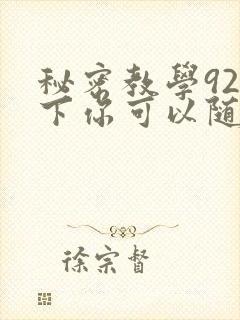 秘密教學92
下你可以随
徐宗督